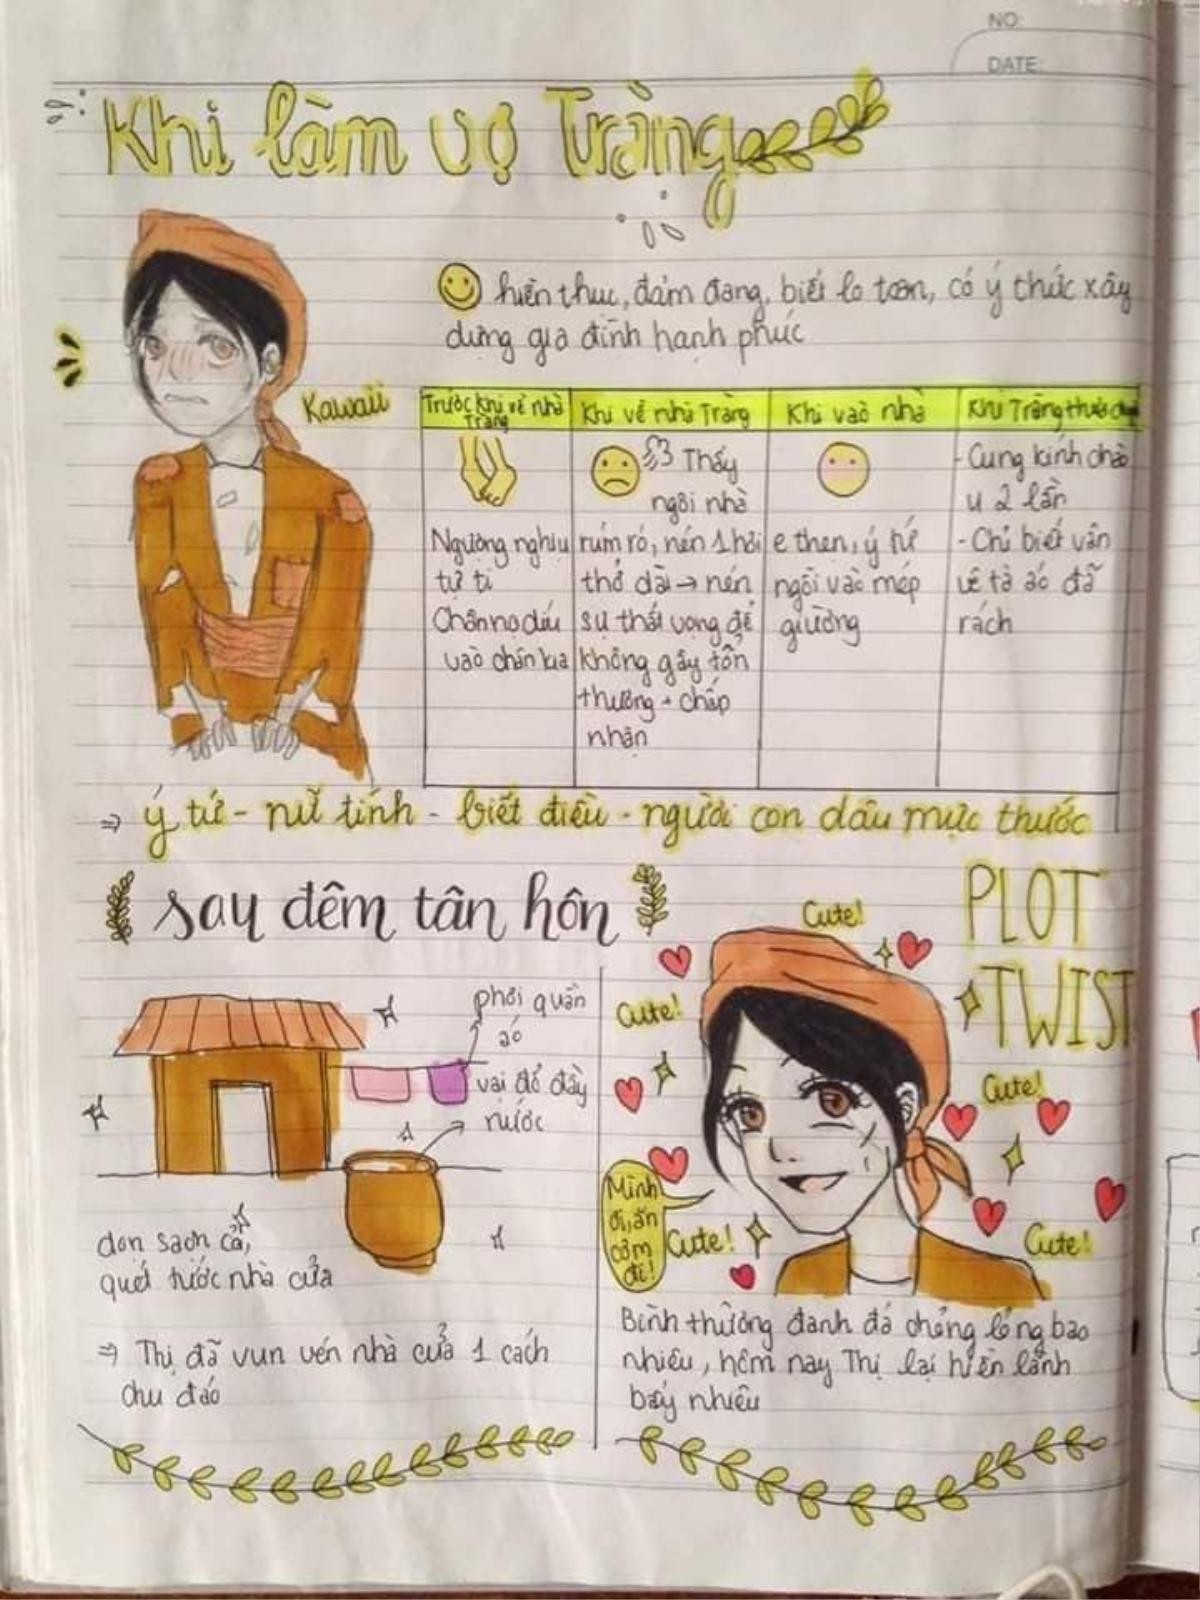 NO:
DATE:
Khi làm vợ Tràng
hiền thục, đảm đang, biết lo toan, có ý thức xây
dựng gia đình hạnh phúc
Kawaii
Trước khi về nhà
Tràng
Ngượng nghịu
tự ti
Chân nọ díu
vào chân kia
Khi về nhà Tràng
Thấy
ngôi nhà
rúm ró, nén 1 hơi
thở dài → nén
sự thất vọng để
không gây tổn
thương + chấp
nhận
Khi vào nhà
e thẹn, ý tứ
ngồi vào mép
giường
Khi Tràng
- Cung kính chào
u 2 lần
- Chỉ biết vân
vê tà áo đã
rách
⇒ ý tứ - nữ tính - biết điều - người con dâu mực thước
say đêm tân hôn
phơi quần
áo
vại đổ đầy
nước
dọn sạch cả,
quét tước nhà cửa
⇒ Thị đã vun vén nhà cửa 1 cách
chu đáo
PLOT
TWIST
Cute!
Cute!
Cute!
Mình
ơi, ăn
cơm
đi!
Cute!
Cute!
Bình thường đanh đá chỏng lỏng bao
nhiêu, hôm nay Thị lại hiền lành
bấy nhiêu